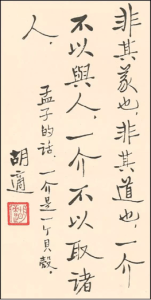 非其義也,非其道也,一介
不以與人,一介不以取諸
人,
孟子的話,一介是一个貝殼
胡適